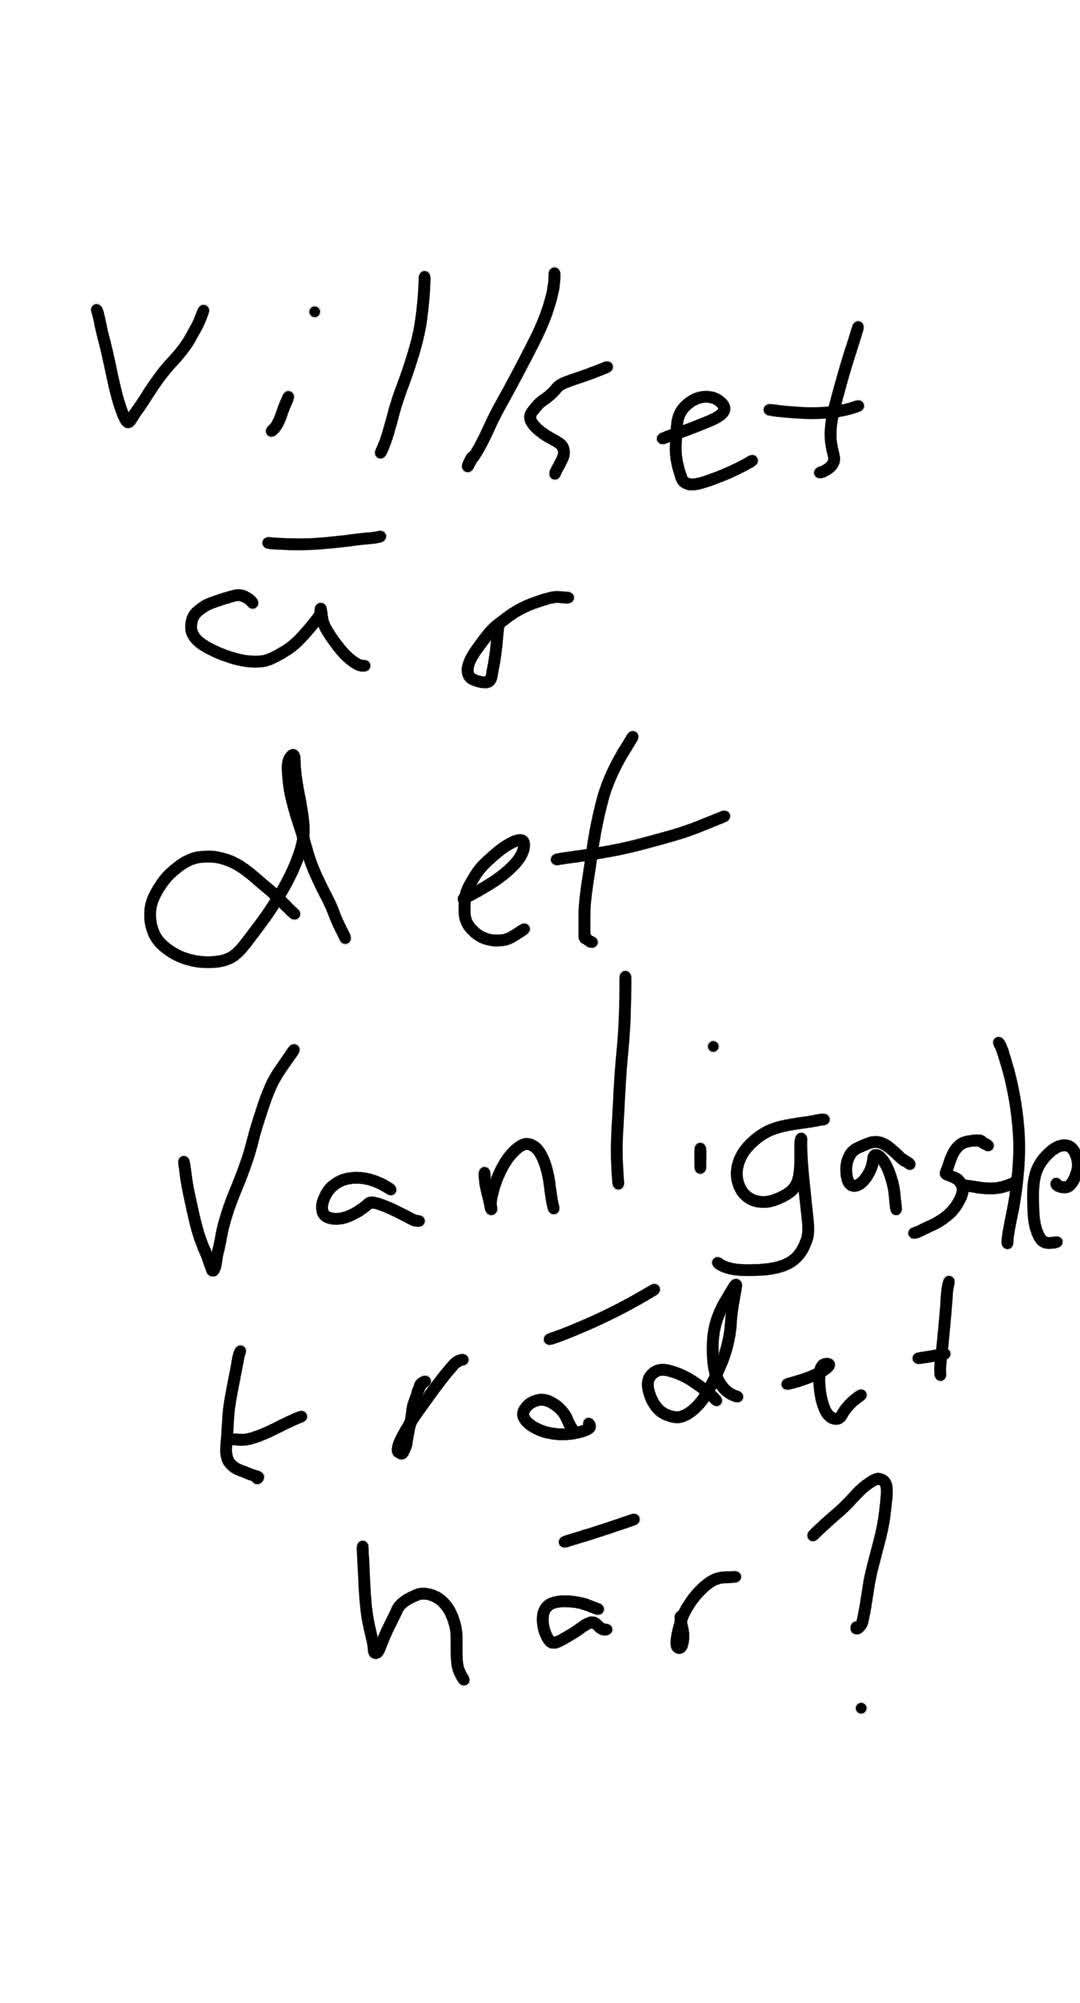 Vilket
är
det
Vanligaste
trädet
här?